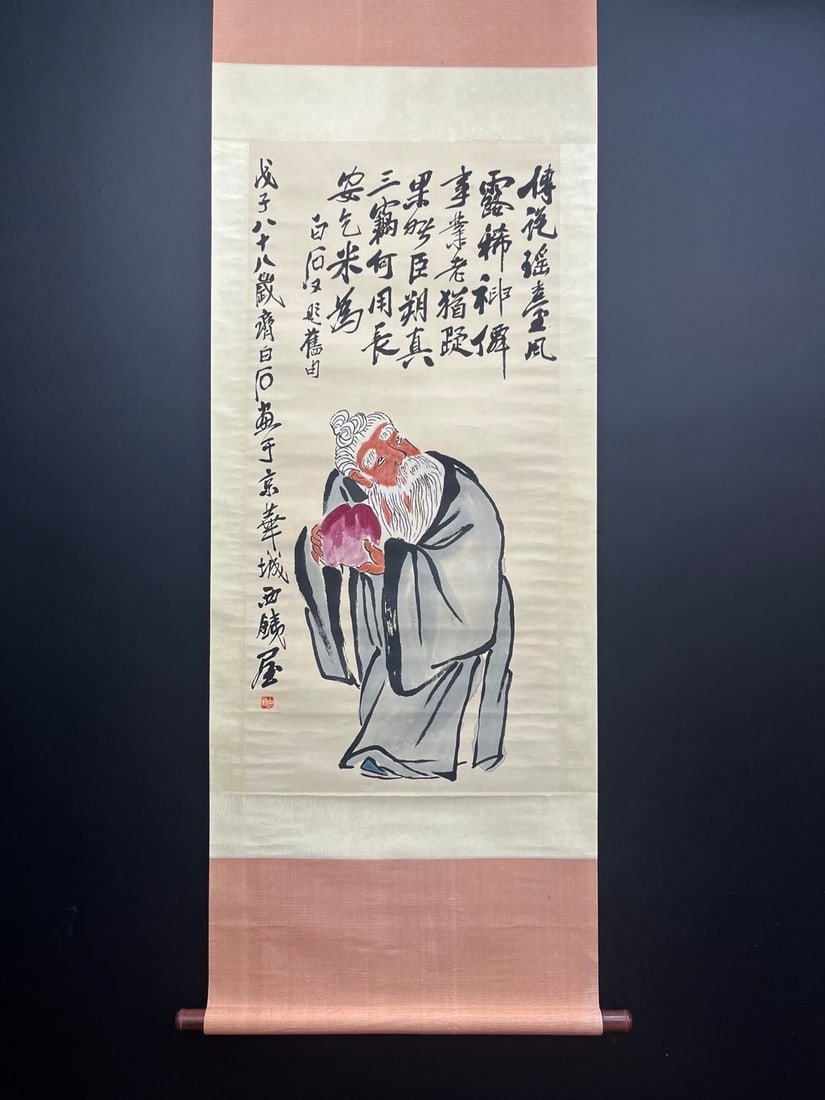 傳說瑶臺風
露稀神僊
事業老猶疑
果然臣朔真
三竊何用長
安乞米為
白石又題舊句
戊子八十八歲齊白石畫于京華城西鐵屋